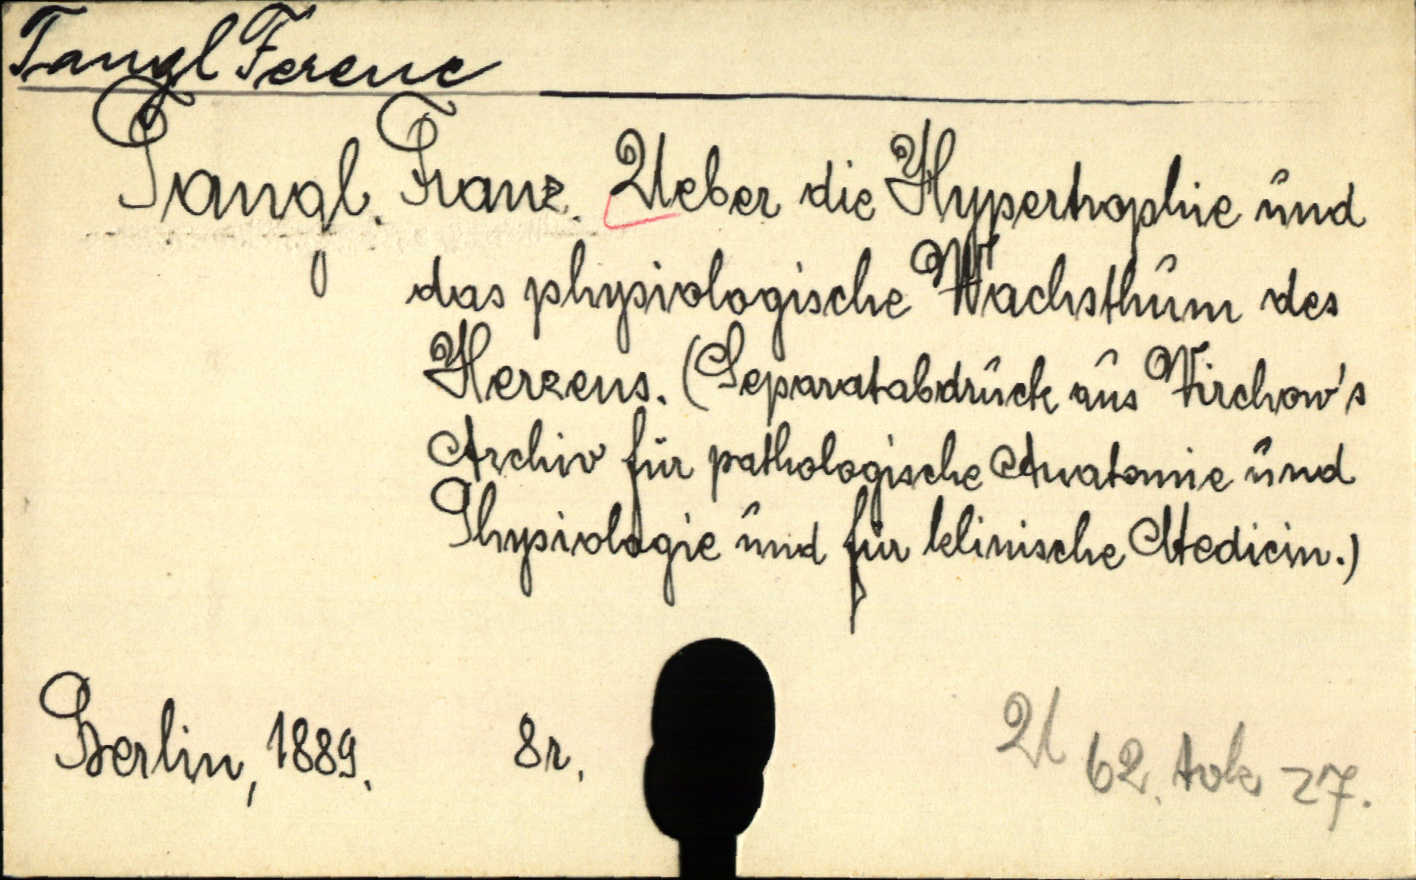 Tangl Ferenc
Tangl. Franz. Ueber die Hypertrophie und
das physiologische Wachsthum des
Herzens. (Separatabdruck aus Virchow's
Archiv für pathologische Anatomie und
Physiologie und für klinische Medicin.)
Berlin, 1889. 8r. U 62. tok 27.